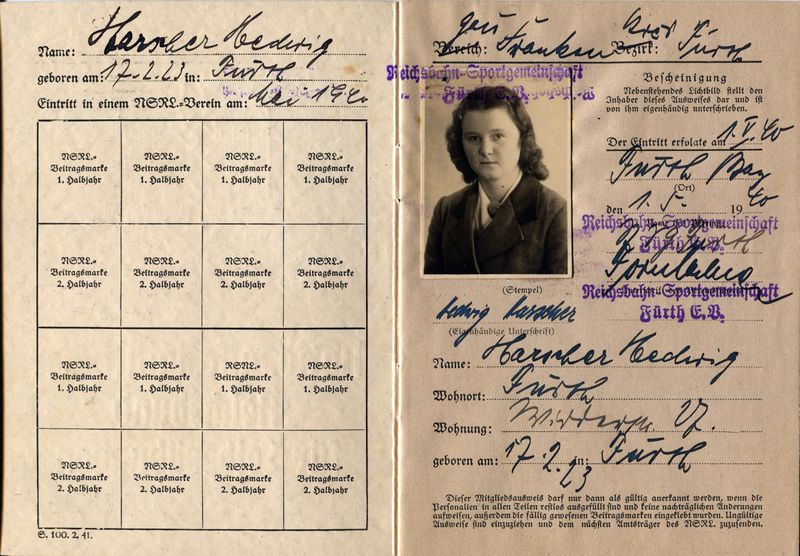 Name: Harscher Hedwig
geboren am: 17.2.23 in: Fürth
Eintritt in einem NSRL.=Verein am: Mai 1940
NSRL.= Beitragsmarke 1. Halbjahr
NSRL.= Beitragsmarke 1. Halbjahr
NSRL.= Beitragsmarke 1. Halbjahr
NSRL.= Beitragsmarke 1. Halbjahr
NSRL.= Beitragsmarke 2. Halbjahr
NSRL.= Beitragsmarke 2. Halbjahr
NSRL.= Beitragsmarke 2. Halbjahr
NSRL.= Beitragsmarke 2. Halbjahr
NSRL.= Beitragsmarke 1. Halbjahr
NSRL.= Beitragsmarke 1. Halbjahr
NSRL.= Beitragsmarke 1. Halbjahr
NSRL.= Beitragsmarke 1. Halbjahr
NSRL.= Beitragsmarke 2. Halbjahr
NSRL.= Beitragsmarke 2. Halbjahr
NSRL.= Beitragsmarke 2. Halbjahr
NSRL.= Beitragsmarke 2. Halbjahr
S. 100. 2. 41.
Gau Kreis
Bereich: Franken Bezirk: Fürth
Reichsbahn-Sportgemeinschaft
Fürth E.V.
Bescheinigung
Nebenstehendes Lichtbild stellt den
Inhaber dieses Ausweises dar und ist
von ihm eigenhändig unterschrieben.
Der Eintritt erfolgte am 1.V.40
Fürth Bay
(Ort)
den 1.5. 1940
Reichsbahn-Sportgemeinschaft
Fürth E.V.
(Stempel)
Reichsbahn-Sportgemeinschaft
Fürth E.V.
Hedwig Harscher
(Eigenhändige Unterschrift)
Name: Harscher Hedwig
Wohnort: Fürth
Wohnung:
geboren am: 17.2.23 in: Fürth
Dieser Mitgliedsausweis darf nur dann als gültig anerkannt werden, wenn die
Personalien in allen Teilen restlos ausgefüllt sind und keine nachträglichen Änderungen
aufweisen, außerdem die fällig gewesenen Beitragsmarken eingeklebt wurden. Ungültige
Ausweise sind einzuziehen und dem nächsten Amtsträger des NSRL. zuzusenden.